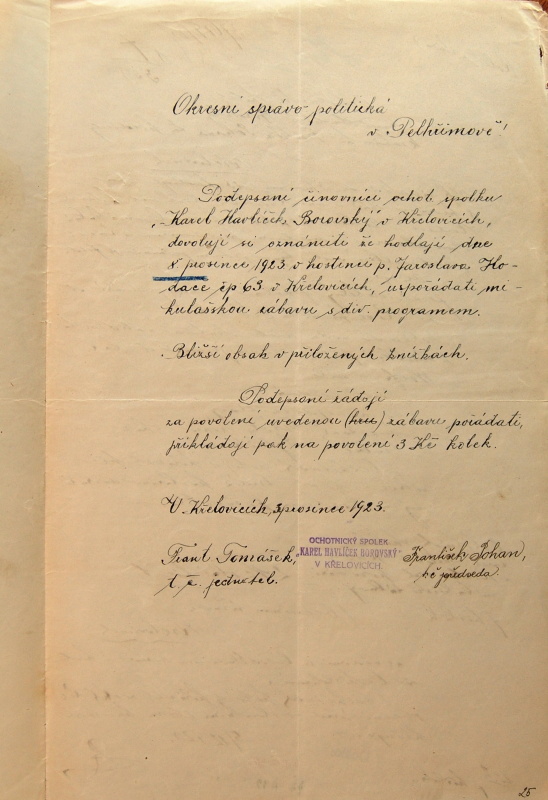 Okresní správo-politická
v Pelhřimově!
Podepsaní činovníci ochot. spolku
„Karel Havlíček Borovský" v Křelovicích,
dovolují si oznámiti že hodlají dne
prosince 1923 v hostinci p. Jaroslava Ho-
dace čp 63 v Křelovicích, uspořádati mi-
kulášskou zábavu s div. programem.
Bližší obsah v přiložených knížkách.
Podepsaní žádají
za povolení uvedenou (hru) zábavu pořádati,
přikládají pak na povolení 3 Kč kolek.
V. Křelovicích, 3 prosince 1923.
Frant Tomášek,
t. č. jednatel.
OCHOTNICKÝ SPOLEK
„KAREL HAVLÍČEK BOROVSKÝ"
V KŘELOVICÍCH.
František Johan,
tč předseda.
25